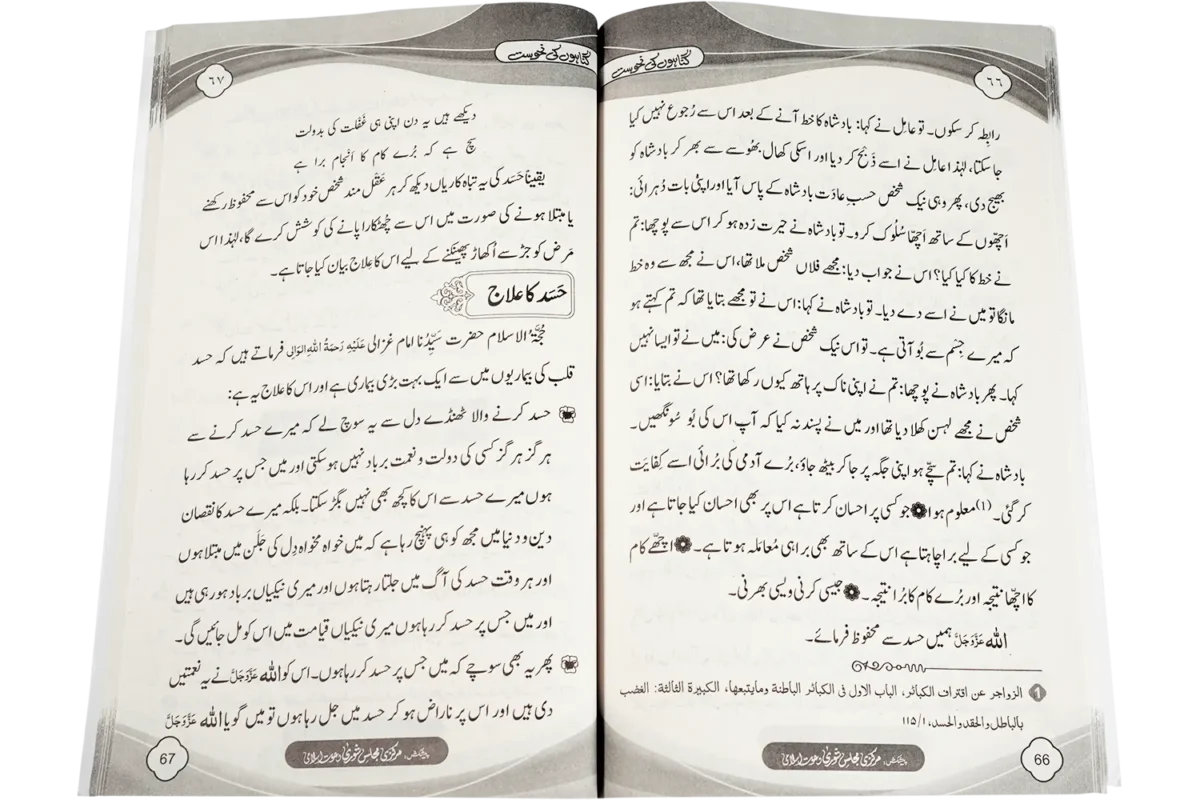 گناہوں کی نحوست
٦٦
رابطہ کر سکوں۔ تو عامِل نے کہا: بادشاہ کا خط آنے کے بعد اس سے رُجوع نہیں کیا
جاسکتا، لہٰذا عامل نے اسے ذَبْح کر دیا اور اسکی کھال بھُوسے سے بھر کر بادشاہ کو
بھیج دی، پھر وہی نیک شخص حسبِ عادت بادشاہ کے پاس آیا اور اپنی بات دُہرائی:
اَچھوں کے ساتھ اَچھا سُلُوک کرو۔ تو بادشاہ نے حیرت زدہ ہو کر اس سے پوچھا: تم
نے خط کا کیا کیا؟ اس نے جواب دیا: مجھے فلاں شخص ملا تھا، اس نے مجھ سے وہ خط
مانگا تو میں نے اسے دے دیا۔ تو بادشاہ نے کہا: اس نے تو مجھے بتایا تھا کہ تم کہتے ہو
کہ میرے جِسْم سے بُو آتی ہے۔ تو اس نیک شخص نے عرض کی: میں نے تو ایسا نہیں
کہا۔ پھر بادشاہ نے پوچھا: تم نے اپنی ناک پر ہاتھ کیوں رکھا تھا؟ اس نے بتایا: اسی
شخص نے مجھے لہسن کھلا دیا تھا اور میں نے پسند نہ کیا کہ آپ اس کی بُو سُونگھیں۔
بادشاہ نے کہا: تم سچّے ہو اپنی جگہ پر جا کر بیٹھ جاؤ، بُرے آدمی کی بُرائی اسے کِفایَت
کر گئی۔(۱) معلوم ہوا جو کسی پر احسان کرتا ہے اس پر بھی احسان کیا جاتا ہے اور
جو کسی کے لیے برا چاہتا ہے اس کے ساتھ بھی برا ہی مُعامَلہ ہوتا ہے۔ اچھے کام
کا اچھا نتیجہ اور بُرے کام کا بُرا نتیجہ۔ جیسی کرنی ویسی بھرنی۔
اللہ عَزَّوَجَلَّ ہمیں حسد سے محفوظ فرمائے۔
1 الزواجر عن اقتراف الكبائر، الباب الاول فی الكبائر الباطنة ومایتبعها، الكبیرة الثالثة: الغضب
بالباطل والحقد والحسد، ۱/۱۱۵
پیشکش: مرکزی مجلسِ شوریٰ دعوتِ اسلامی
66
گناہوں کی نحوست
٦٧
دیکھے ہیں یہ دن اپنی ہی غَفْلت کی بدولت
سچ ہے کہ بُرے کام کا اَنْجام برا ہے
یقیناً حَسَد کی یہ تباہ کاریاں دیکھ کر ہر عَقْل مند شخص خود کو اس سے محفوظ رکھنے
یا مبتلا ہونے کی صورت میں اس سے چُھٹکارا پانے کی کوشش کرے گا، لہٰذا اس
مَرَض کو جڑ سے اُکھاڑ پھینکنے کے لیے اس کا علاج بیان کیا جاتا ہے۔
حَسَد کا علاج
حُجَّۃُ الاسلام حضرت سَیِّدُنا امام غزالی عَلَیْہِ رَحْمَۃُ اللہِ الْوَالِی فرماتے ہیں کہ حسد
قلب کی بیماریوں میں سے ایک بہت بڑی بیماری ہے اور اس کا علاج یہ ہے:
حسد کرنے والا ٹھنڈے دل سے یہ سوچ لے کہ میرے حسد کرنے سے
ہرگز ہرگز کسی کی دولت و نعمت برباد نہیں ہوسکتی اور میں جس پر حسد کر رہا
ہوں میرے حسد سے اس کا کچھ بھی نہیں بگڑ سکتا۔ بلکہ میرے حسد کا نقصان
دین و دنیا میں مجھ کو ہی پہنچ رہا ہے کہ میں خواہ مخواہ دِل کی جَلَن میں مبتلا ہوں
اور ہر وقت حسد کی آگ میں جلتا رہتا ہوں اور میری نیکیاں برباد ہو رہی ہیں
اور میں جس پر حسد کر رہا ہوں میری نیکیاں قیامت میں اس کو مل جائیں گی۔
پھر یہ بھی سوچے کہ میں جس پر حسد کر رہا ہوں۔ اس کو اللہ عَزَّوَجَلَّ نے یہ نعمتیں
دی ہیں اور اس پر ناراض ہو کر حسد میں جل رہا ہوں تو میں گویا اللہ عَزَّوَجَلَّ
پیشکش: مرکزی مجلسِ شوریٰ دعوتِ اسلامی
67